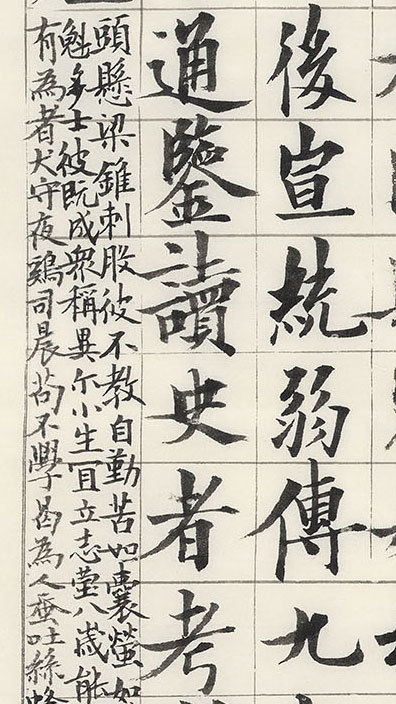 後宣統弱傳九
通鑒讀史者考
頭懸梁錐刺股彼不教自勤苦如囊螢如
魁多士彼既成眾稱異尔小生宜立志瑩八歲能
有為者犬守夜鷄司晨苟不學曷為人蚕吐絲蜂